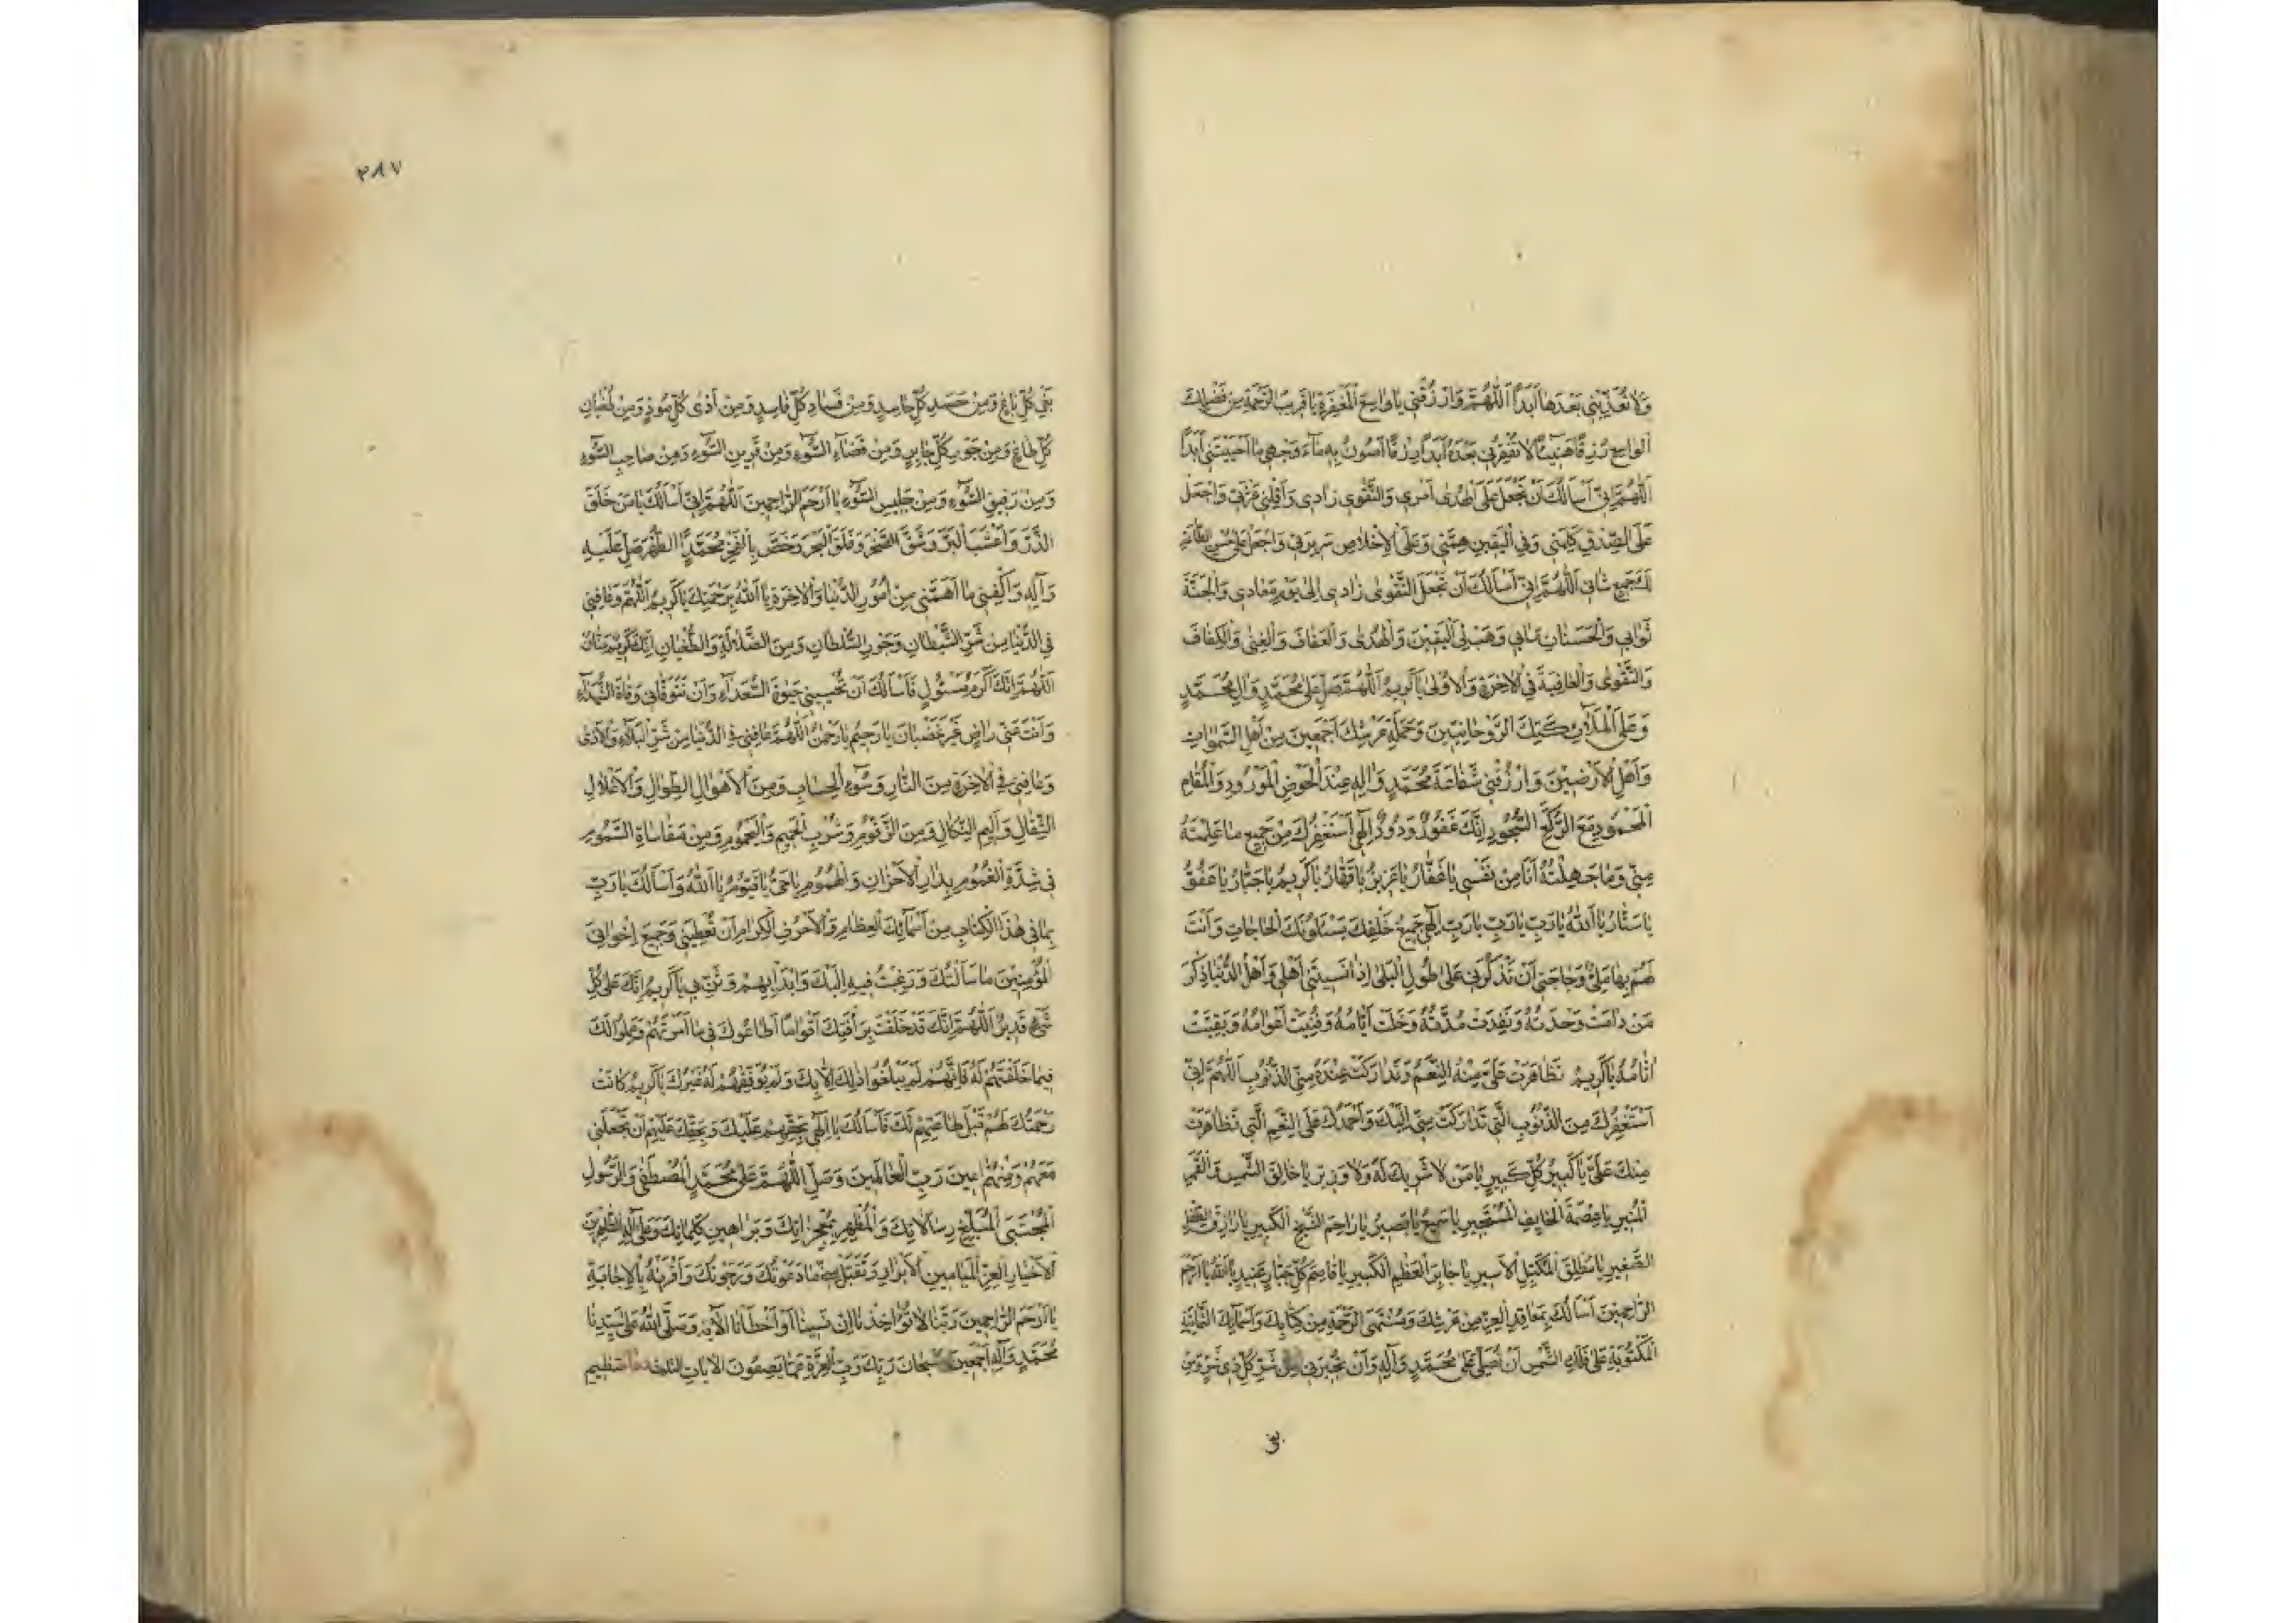 وَلا تُعَذِّبْنِي بَعْدَهَا اَبَدًا اَللّٰهُمَّ وَارْزُقْنِي يَا وَاسِعَ الْمَغْفِرَةِ يَا قَرِيبَ الرَّحْمَةِ مِنْ فَضْلِكَ
الْوَاسِعِ رِزْقًا هَنِيئًا لا تُفْقِرْنِي بَعْدَهُ اَبَدًا رِزْقًا اَصُونُ بِهِ مَاءَ وَجْهِي مَا اَحْيَيْتَنِي اَبَدًا
اَللّٰهُمَّ اِنِّي اَسْاَلُكَ اَنْ تَجْعَلَ عَلَى الْهُدٰى اَمْرِي وَالتَّقْوٰى زَادِي وَاَقِلْنِي عَثْرَتِي وَاجْعَلْ
عَلَى الصِّدْقِ كَلِمَتِي وَفِي الْيَقِينِ هِمَّتِي وَعَلَى الْاِخْلَاصِ سَرِيرَتِي وَاجْعَلْ عَلٰى حُسْنِ الطَّاعَةِ
لَكَ جَمِيعَ شَانِي اَللّٰهُمَّ اِنِّي اَسْاَلُكَ اَنْ تَجْعَلَ التَّقْوٰى زَادِي اِلٰى يَوْمِ مَعَادِي وَالْجَنَّةَ
ثَوَابِي وَالْحَسَنَاتِ مَآبِي وَهَبْ لِيَ الْيَقِينَ وَالْهُدٰى وَالْعَفَافَ وَالْغِنٰى وَالْكَفَافَ
وَالتَّقْوٰى وَالْعَافِيَةَ فِي الْاٰخِرَةِ وَالْاُولٰى يَا كَرِيمُ اَللّٰهُمَّ صَلِّ عَلٰى مُحَمَّدٍ وَاٰلِ مُحَمَّدٍ
وَعَلَى الْمَلَآئِكَتِكَ الرَّوْحَانِيِّينَ وَحَمَلَةِ عَرْشِكَ اَجْمَعِينَ مِنْ اَهْلِ السَّمٰوَاتِ
وَاَهْلِ الْاَرَضِينَ وَارْزُقْنِي شَفَاعَةَ مُحَمَّدٍ وَاٰلِهِ عِنْدَ الْحَوْضِ الْمَوْرُودِ وَالْمَقَامِ
الْمَحْمُودِ مَعَ الرُّكَّعِ السُّجُودِ اِنَّكَ غَفُورٌ وَدُودٌ اِلٰهِي اَسْتَغْفِرُكَ مِنْ جَمِيعِ مَا عَلِمْتَهُ
مِنِّي وَمَا جَهِلْتُهُ اَنَا مِنْ نَفْسِي يَا غَفَّارُ يَا عَزِيزُ يَا قَهَّارُ يَا كَرِيمُ يَا جَبَّارُ يَا عَفُوُّ
يَا سَتَّارُ يَا اَللّٰهُ يَا رَبِّ يَا رَبِّ يَا رَبِّ اِلٰهِي جَمِيعُ خَلْقِكَ يَسْئَلُونَكَ الْحَاجَاتِ وَاَنْتَ
لَهُمْ بِهَا مَلِيٌّ وَحَاجَتِي اَنْ تَذْكُرَنِي عَلٰى طُولِ الْبَلٰى اِذَا نَسِيَنِي اَهْلِي وَاَهْلُ الدُّنْيَا ذِكْرَ
مَنْ دَامَتْ وَحْدَتُهُ وَنَفِدَتْ مُدَّتُهُ وَخَلَتْ اَيَّامُهُ وَفَنِيَتْ اَعْوَامُهُ وَبَقِيَتْ
اٰثَامُهُ يَا كَرِيمُ تَظَاهَرَتْ عَلَيَّ مِنْهُ النِّعَمُ وَتَدَارَكَتْ عِنْدَهُ مِنِّي الذُّنُوبُ اَللّٰهُمَّ اِنِّي
اَسْتَغْفِرُكَ مِنَ الذُّنُوبِ الَّتِي تَدَارَكَتْ مِنِّي اِلَيْكَ وَاَحْمَدُكَ عَلَى النِّعَمِ الَّتِي تَظَاهَرَتْ
مِنْكَ عَلَيَّ يَا كَبِيرُ كُلِّ كَبِيرٍ يَا مَنْ لا شَرِيكَ لَهُ وَلا وَزِيرَ يَا خَالِقَ الشَّمْسِ وَالْقَمَرِ
الْمُنِيرِ يَا عِصْمَةَ الْخَائِفِ الْمُسْتَجِيرِ يَا سَمِيعُ يَا بَصِيرُ يَا رَاحِمَ الشَّيْخِ الْكَبِيرِ يَا رَازِقَ الطِّفْلِ
الصَّغِيرِ يَا مُطْلِقَ الْمُكَبَّلِ الْاَسِيرِ يَا جَابِرَ الْعَظْمِ الْكَسِيرِ يَا قَاصِمَ كُلِّ جَبَّارٍ عَنِيدٍ يَا اَللّٰهُ يَا اَرْحَمَ
الرَّاحِمِينَ اَسْاَلُكَ بِمَعَاقِدِ الْعِزِّ مِنْ عَرْشِكَ وَمُنْتَهَى الرَّحْمَةِ مِنْ كِتَابِكَ وَاَسْمَائِكَ الثَّمَانِيَةِ
الْمَكْتُوبَةِ عَلٰى فَلَكِ الشَّمْسِ اَنْ تُصَلِّيَ عَلٰى مُحَمَّدٍ وَاٰلِهِ وَاَنْ تُجِيرَنِي مِنْ شَرِّ كُلِّ ذِي شَرٍّ وَمِنْ
بغى
٣٨٧
بَغْيِ كُلِّ بَاغٍ وَمِنْ حَسَدِ كُلِّ حَاسِدٍ وَمِنْ فَسَادِ كُلِّ فَاسِدٍ وَمِنْ اَذٰى كُلِّ مُوذٍ وَمِنْ طُغْيَانِ
كُلِّ طَاغٍ وَمِنْ جَوْرِ كُلِّ جَائِرٍ وَمِنْ قَضَاءِ السُّوءِ وَمِنْ قَرِينِ السُّوءِ وَمِنْ صَاحِبِ السُّوءِ
وَمِنْ رَفِيقِ السُّوءِ وَمِنْ جَلِيسِ السُّوءِ يَا اَرْحَمَ الرَّاحِمِينَ اَللّٰهُمَّ اِنِّي اَسْاَلُكَ يَا مَنْ خَلَقَ
الذَّرَّ وَاَعْشَبَ الْبَرَّ وَشَقَّ الصَّخْرَ وَفَلَقَ الْبَحْرَ وَخَصَّ بِالْفَخْرِ مُحَمَّدًا الطُّهْرَ صَلِّ عَلَيْهِ
وَآلِهِ وَاكْفِنِي مَا اَهَمَّنِي مِنْ اُمُورِ الدُّنْيَا وَالْاٰخِرَةِ يَا اَللّٰهُ بِرَحْمَتِكَ يَا كَرِيمُ اَللّٰهُمَّ وَعَافِنِي
فِي الدُّنْيَا مِنْ شَرِّ الشَّيْطَانِ وَجَوْرِ السُّلْطَانِ وَمِنَ الضَّلَالَةِ وَالطُّغْيَانِ اِنَّكَ كَرِيمٌ مَنَّانٌ
اَللّٰهُمَّ اِنَّكَ اَكْرَمُ مَسْئُولٍ فَاَسْاَلُكَ اَنْ تُحْيِيَنِي حَيٰوةَ السُّعَدَاءِ وَاَنْ تَتَوَفَّانِي وَفَاةَ الشُّهَدَاءِ
وَاَنْتَ عَنِّي رَاضٍ غَيْرَ غَضْبَانَ يَا رَحِيمُ يَا رَحْمٰنُ اَللّٰهُمَّ عَافِنِي فِي الدُّنْيَا مِنْ شَرِّ الْبَلَاءِ وَالْاَذٰى
وَعَافِنِي فِي الْاٰخِرَةِ مِنَ النَّارِ وَسُوءِ الْحِسَابِ وَمِنَ الْاَهْوَالِ الطِّوَالِ وَالْاَغْلَالِ
الثِّقَالِ وَاَلِيمِ النَّكَالِ وَمِنَ الزَّقُّومِ وَشُرْبِ الْحَمِيمِ وَالْيَحْمُومِ وَمِنْ مُقَاسَاةِ السَّمُومِ
فِي شِدَّةِ الْغُمُومِ بِدَارِ الْاَحْزَانِ وَالْهُمُومِ يَا حَيُّ يَا قَيُّومُ يَا اَللّٰهُ وَاَسْاَلُكَ يَا رَبِّ
بِمَا فِي هٰذَا الْكِتَابِ مِنْ اَسْمَائِكَ الْعِظَامِ وَالْاَحْرُفِ الْكِرَامِ اَنْ تُعْطِيَنِي وَجَمِيعَ اِخْوَانِيَ
الْمُؤْمِنِينَ مَا سَاَلْتُكَ وَرَغِبْتُ فِيهِ اِلَيْكَ وَابْدَأْ بِهِمْ وَثَنِّ بِي يَا كَرِيمُ اِنَّكَ عَلٰى كُلِّ
شَيْءٍ قَدِيرٌ اَللّٰهُمَّ اِنَّكَ قَدْ خَلَقْتَ بِرَأْفَتِكَ اَقْوَامًا اَطَاعُوكَ فِي مَا اَمَرْتَهُمْ وَعَمِلُوا لَكَ
فِيمَا خَلَقْتَهُمْ لَهُ فَاِنَّهُمْ لَمْ يَبْلُغُوا ذٰلِكَ اِلَّا بِكَ وَلَمْ يُوَفِّقْهُمْ لَهُ غَيْرُكَ يَا كَرِيمُ كَانَتْ
رَحْمَتُكَ لَهُمْ قَبْلَ طَاعَتِهِمْ لَكَ فَاَسْاَلُكَ يَا اِلٰهِي بِحَقِّهِمْ عَلَيْكَ وَبِحَقِّكَ عَلَيْهِمْ اَنْ تَجْعَلَنِي
مَعَهُمْ وَمِنْهُمْ اٰمِينَ رَبَّ الْعَالَمِينَ وَصَلِّ اللّٰهُمَّ عَلٰى مُحَمَّدٍ الْمُصْطَفٰى وَالرَّسُولِ
الْمُجْتَبَى الْمُبَلِّغِ رِسَالَاتِكَ وَالْمُظْهِرِ مُعْجِزَاتِكَ وَبَرَاهِينِ كَلِمَاتِكَ وَعَلٰى آلِهِ الطَّاهِرِينَ
الْاَخْيَارِ الْغُرِّ الْمَيَامِينِ الْاَبْرَارِ وَتَقَبَّلْ مِنِّي مَا دَعَوْتُكَ وَرَجَوْتُكَ وَاَقْرِنْهُ بِالْاِجَابَةِ
يَا اَرْحَمَ الرَّاحِمِينَ رَبَّنَا لا تُؤَاخِذْنَا اِنْ نَسِينَا اَوْ اَخْطَأْنَا الْاٰيَةَ وَصَلَّى اللّٰهُ عَلٰى سَيِّدِنَا
مُحَمَّدٍ وَآلِهِ اَجْمَعِينَ سُبْحَانَ رَبِّكَ رَبِّ الْعِزَّةِ عَمَّا يَصِفُونَ الْاٰيَاتِ الثلثه